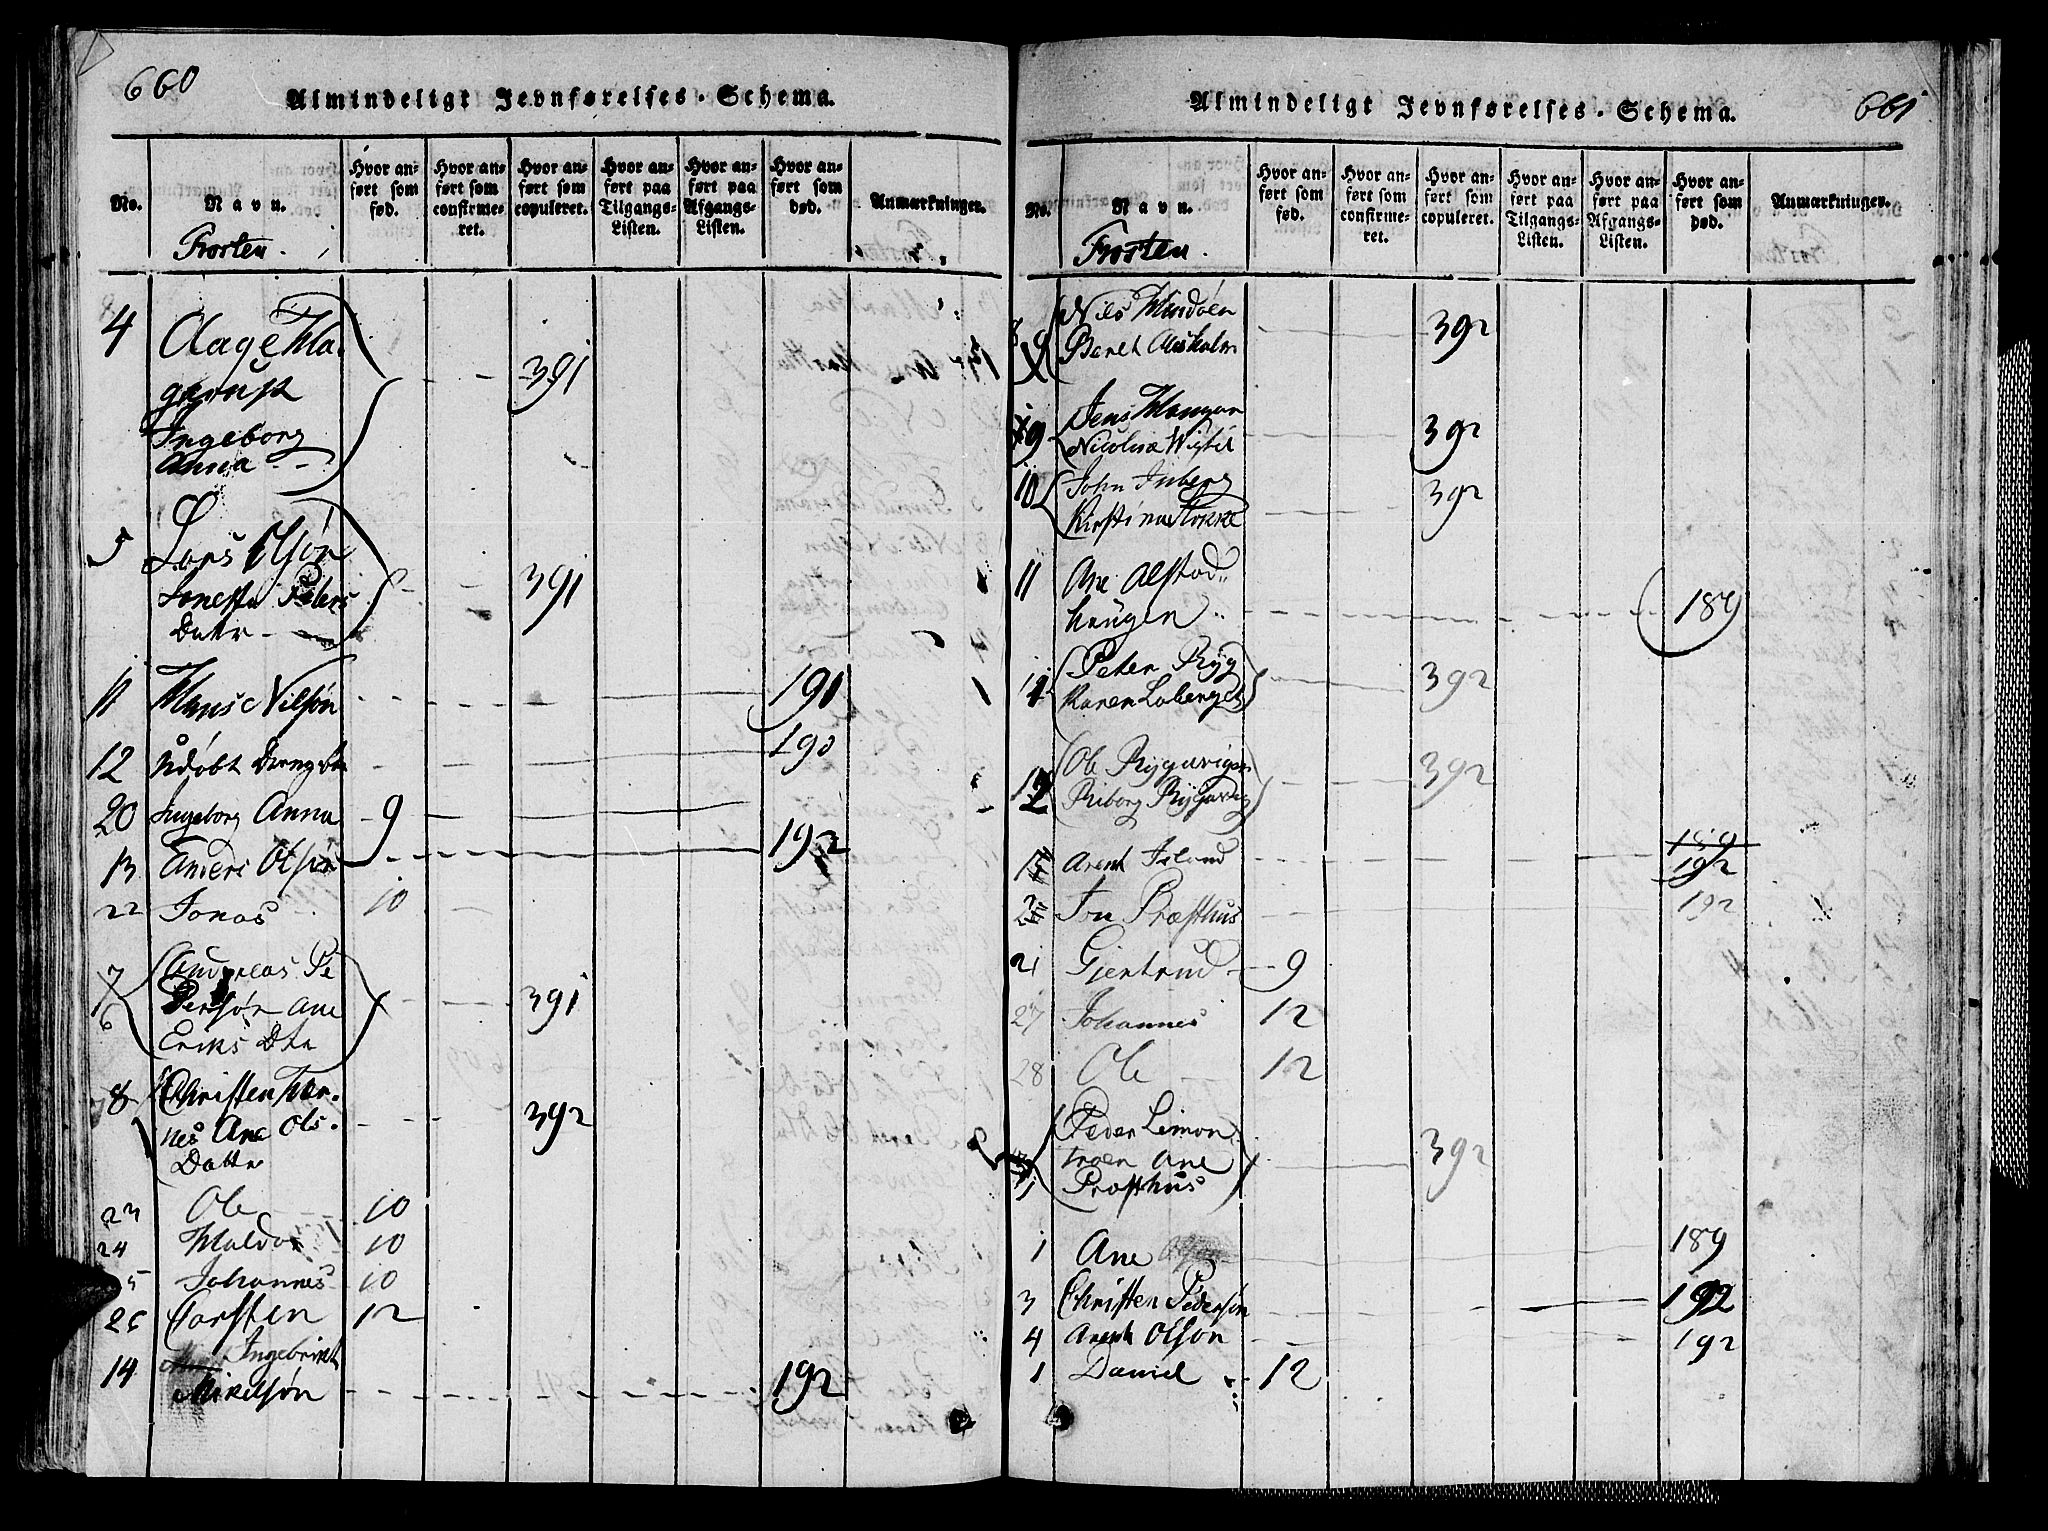 660
Almindeligt Jevnførelses-Schema.
No.
Navn.
Hvor an-
ført som
fød.
Hvor an-
ført som
confirme-
ret.
Hvor an-
ført som
copuleret.
Hvor an-
ført paa
Tilgangs-
Listen.
Hvor an-
ført paa
Afgangs-
Listen.
Hvor an-
ført som
død.
Anmærkninger.
Frosten.
4 Aage
391
Ingeborg
Anna
5 Lars Olsøn
Peters 391
Datr
11 Hans Nilsøn 191
12 Udøbt 190
20 Ingeborg Anna 9
13 Anders Olsøn 192
22 Jonas 10
7 Andreas Pe
dersøn Ane 391
6 Eriks Dtr
8 Christen
nes Ane Ols. 392
Datter
23 Ole 10
24 Haldor 10
5 Johannes 10
26 Torsten 12
Ingebrikt
14 Mikelsøn 192
Almindeligt Jevnførelses-Schema.
661
No.
Navn.
Hvor an-
ført som
fød.
Hvor an-
ført som
confirme-
ret.
Hvor an-
ført som
copuleret.
Hvor an-
ført paa
Tilgangs-
Listen.
Hvor an-
ført paa
Afgangs-
Listen.
Hvor an-
ført som
død.
Anmærkninger.
Frosten.
Nils Hindöen 392
Beret
9 Jens
Nicolina 392
10 John Inberg 392
Kirstina Stokke
11 Ane Alstad"
haugen 189
Peter Ryg
Karen 392
12 Ole 392
Riborg
159
Arent 192
Jon Præsthus 192
21 Gjertrud 9
27 Johannes 12
28 Ole 12
Peder Limon
troen Ane 392
1 Præsthus
1 Ane 189
3 Christen Pedersøn 192
4 Arent Olson 192
1 Daniel 12